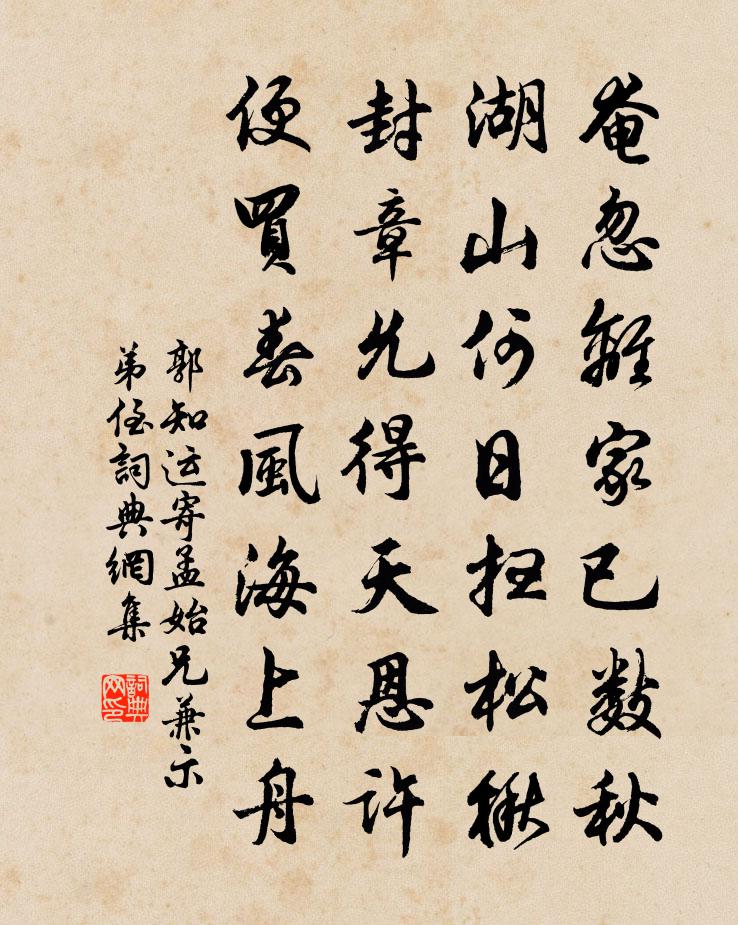 奄忽離家已數秋
湖山何日扫松楸
封章允得天恩許
便買春風海上舟
郭知运寄孟始兄兼示
弟侄詞典網集
詞典网印